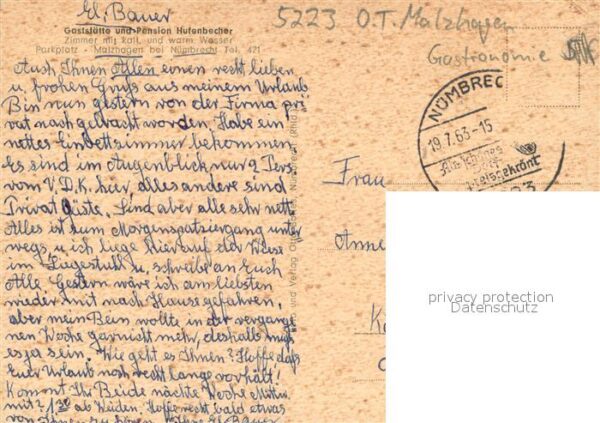 El. Bauer
5223 O.T. Malzhagen
Gastronomie
Gaststätte und Pension Hufenbecher
Zimmer mit kalt. und warm. Wasser
Parkplatz - Malzhagen bei Nümbrecht Tel. 421
NÜMBREC
19.7.63-15
preisgekrönt
Auch Ihnen Allen einen recht lieben
u. frohen Gruß aus meinem Urlaub
Bin nun gestern von der Firma pri
vat nach gebracht worden. Habe ein
nettes Einbettzimmer bekommen
es sind im Augenblick nur 2 Pers.
vom V.D.K. hier, alles andere sind
Privat Gäste. Sind aber alle sehr nett
Alles ist zum Morgenspaziergang unter
wegs, u. ich liege hier auf der Wiese
im Liegestuhl u. schreibe an Euch
Alle. Gestern wäre ich am liebsten
wieder mit nach Hause gefahren,
aber mein Bein wollte in der vergange
nen Woche garnicht mehr, deshalb muß
es ja sein. Wie geht es Ihnen? Hoffe daß
Euer Urlaub noch recht lange vorhält!
Kommt Ihr Beide nächte Woche Mittw.
mit? 1³⁰ ab Weiden. Hoffe recht bald etwas
von Ihnen zu hören. El. Bauer
Frau
Anne
K
privacy protection
Datenschutz